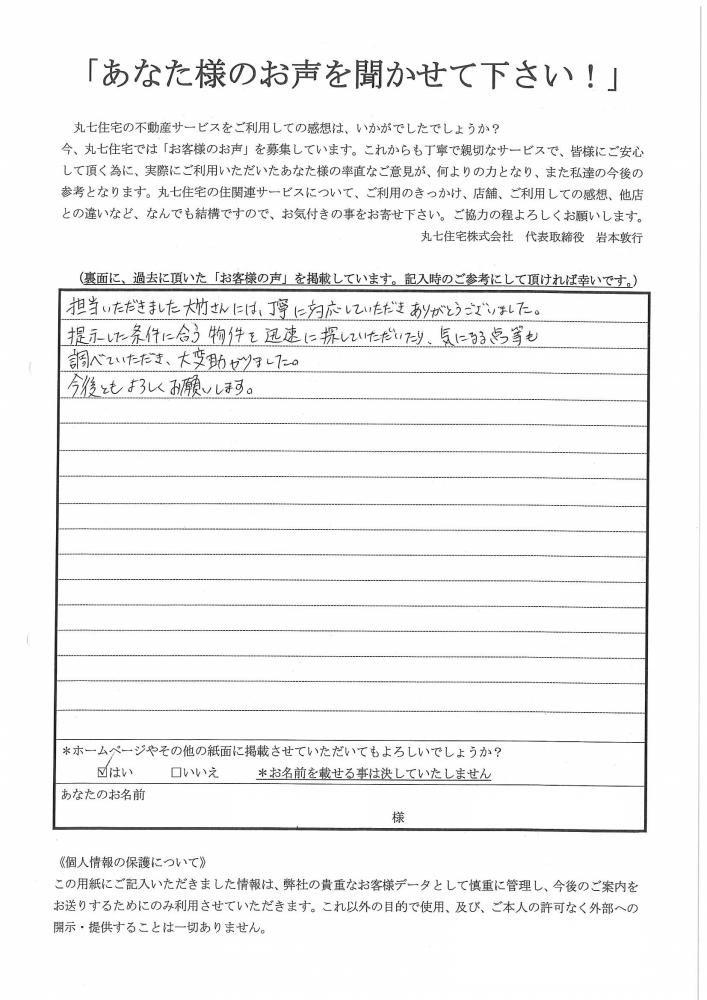 「あなた様のお声を聞かせて下さい！」
丸七住宅の不動産サービスをご利用しての感想は、いかがでしたでしょうか？
今、丸七住宅では「お客様のお声」を募集しています。これからも丁寧で親切なサービスで、皆様にご安心
して頂く為に、実際にご利用いただいたあなた様の率直なご意見が、何よりの力となり、また私達の今後の
参考となります。丸七住宅の住関連サービスについて、ご利用のきっかけ、店舗、ご利用しての感想、他店
との違いなど、なんでも結構ですので、お気付きの事をお寄せ下さい。ご協力の程よろしくお願いします。
丸七住宅株式会社　代表取締役　岩本敦行
（裏面に、過去に頂いた「お客様の声」を掲載しています。記入時のご参考にして頂ければ幸いです。）
担当いただきました大竹さんには、丁寧に対応していただきありがとうございました。
提示した条件に合う物件を迅速に探していただいたり、気になる点等も
調べていただき、大変助かりました。
今後ともよろしくお願いします。
＊ホームページやその他の紙面に掲載させていただいてもよろしいでしょうか？
☑はい　□いいえ　＊お名前を載せる事は決していたしません
あなたのお名前
様
《個人情報の保護について》
この用紙にご記入いただきました情報は、弊社の貴重なお客様データとして慎重に管理し、今後のご案内を
お送りするためにのみ利用させていただきます。これ以外の目的で使用、及び、ご本人の許可なく外部への
開示・提供することは一切ありません。